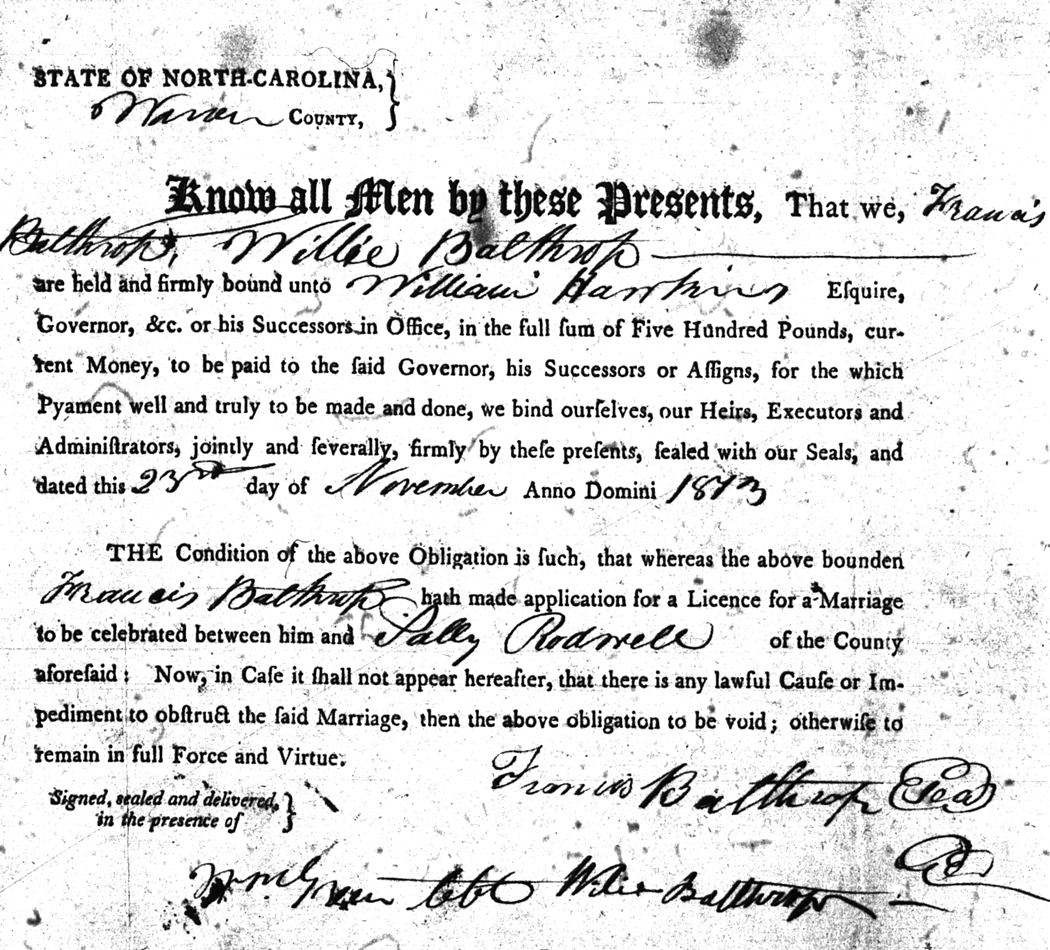 STATE OF NORTH-CAROLINA, }
Warren COUNTY, }
Know all Men by these Presents, That we, Francis
Balthrop, Willie Balthrop
are held and firmly bound unto William Hawkins Eſquire,
Governor, &c. or his Successors in Office, in the full ſum of Five Hundred Pounds, cur-
rent Money, to be paid to the ſaid Governor, his Successors or Aſſigns, for the which
Pyament well and truly to be made and done, we bind ourſelves, our Heirs, Executors and
Adminiſtrators, jointly and ſeverally, firmly by theſe preſents, ſealed with our Seals, and
dated this 23rd day of November Anno Domini 1813
THE Condition of the above Obligation is ſuch, that whereas the above bounden
Francis Balthrop hath made application for a Licence for a Marriage
to be celebrated between him and Sally Rodwell of the County
aforeſaid: Now, in Caſe it ſhall not appear hereafter, that there is any lawful Cauſe or Im-
pediment to obſtruct the ſaid Marriage, then the above obligation to be void; otherwiſe to
remain in full Force and Virtue.
Francis Balthrop Seal
Signed, sealed and delivered, }
in the presence of }
Wm Green Willie Balthrop